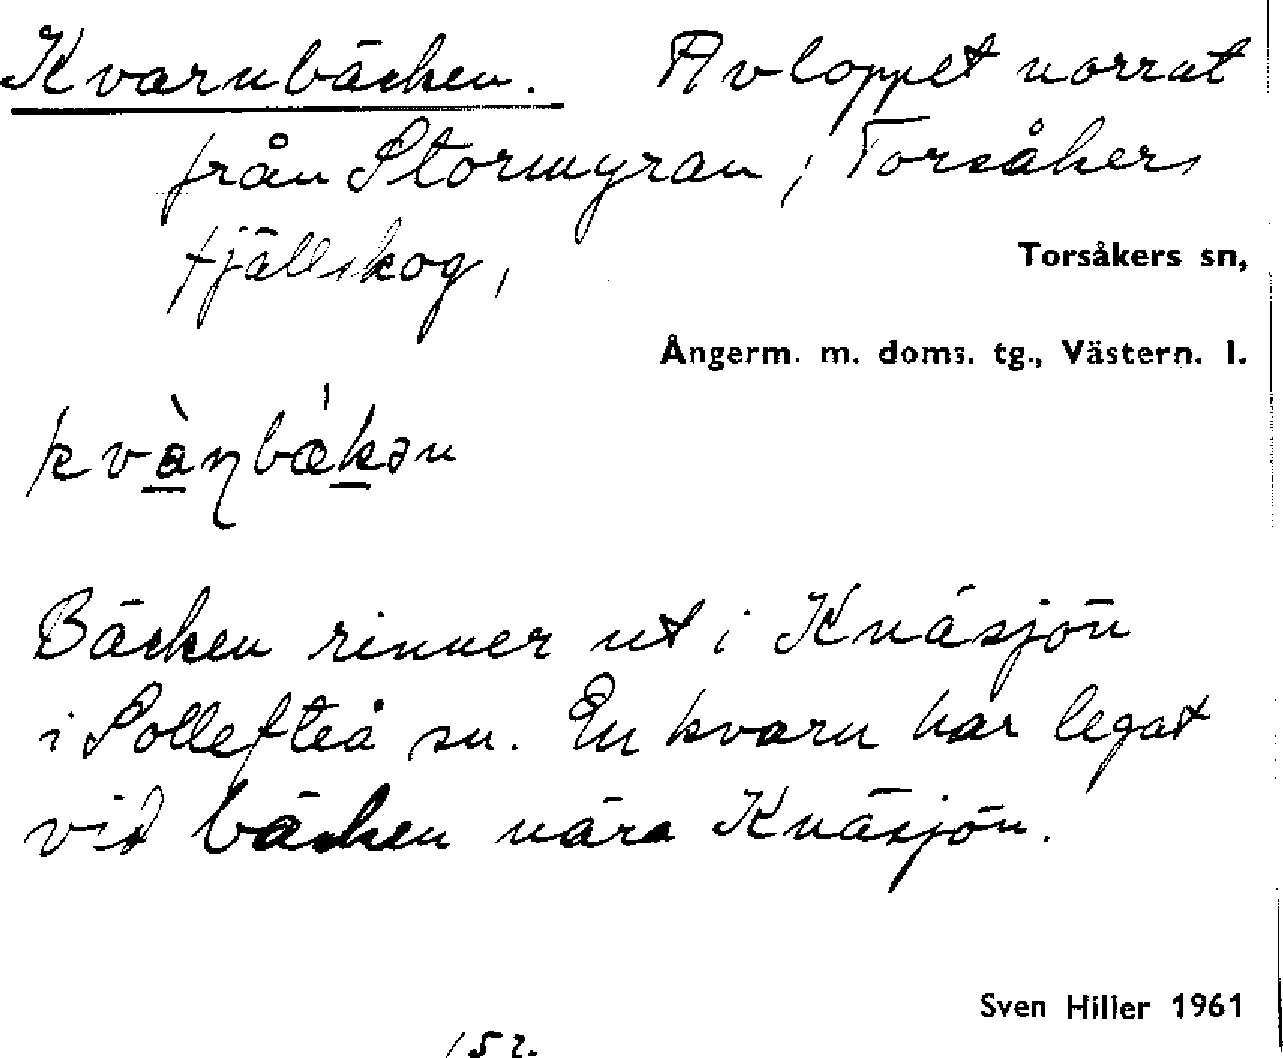 Kvarnbäcken. Avloppet norrut
från Stormyran i Torsåkers
fjällskog,
Torsåkers sn,
Ångerm. m. doms. tg., Västern. l.
kvànbæ̀kən
Bäcken rinner ut i Knäsjön
i Sollefteå sn. En kvarn har legat
vid bäcken nära Knäsjön.
Sven Hiller 1961
152.